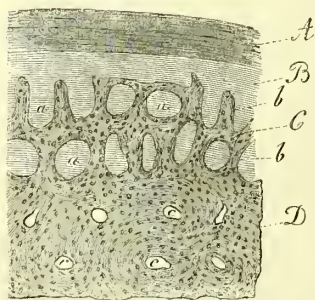 A
B
b
C
b
D
a
a
a
c
c
c
c